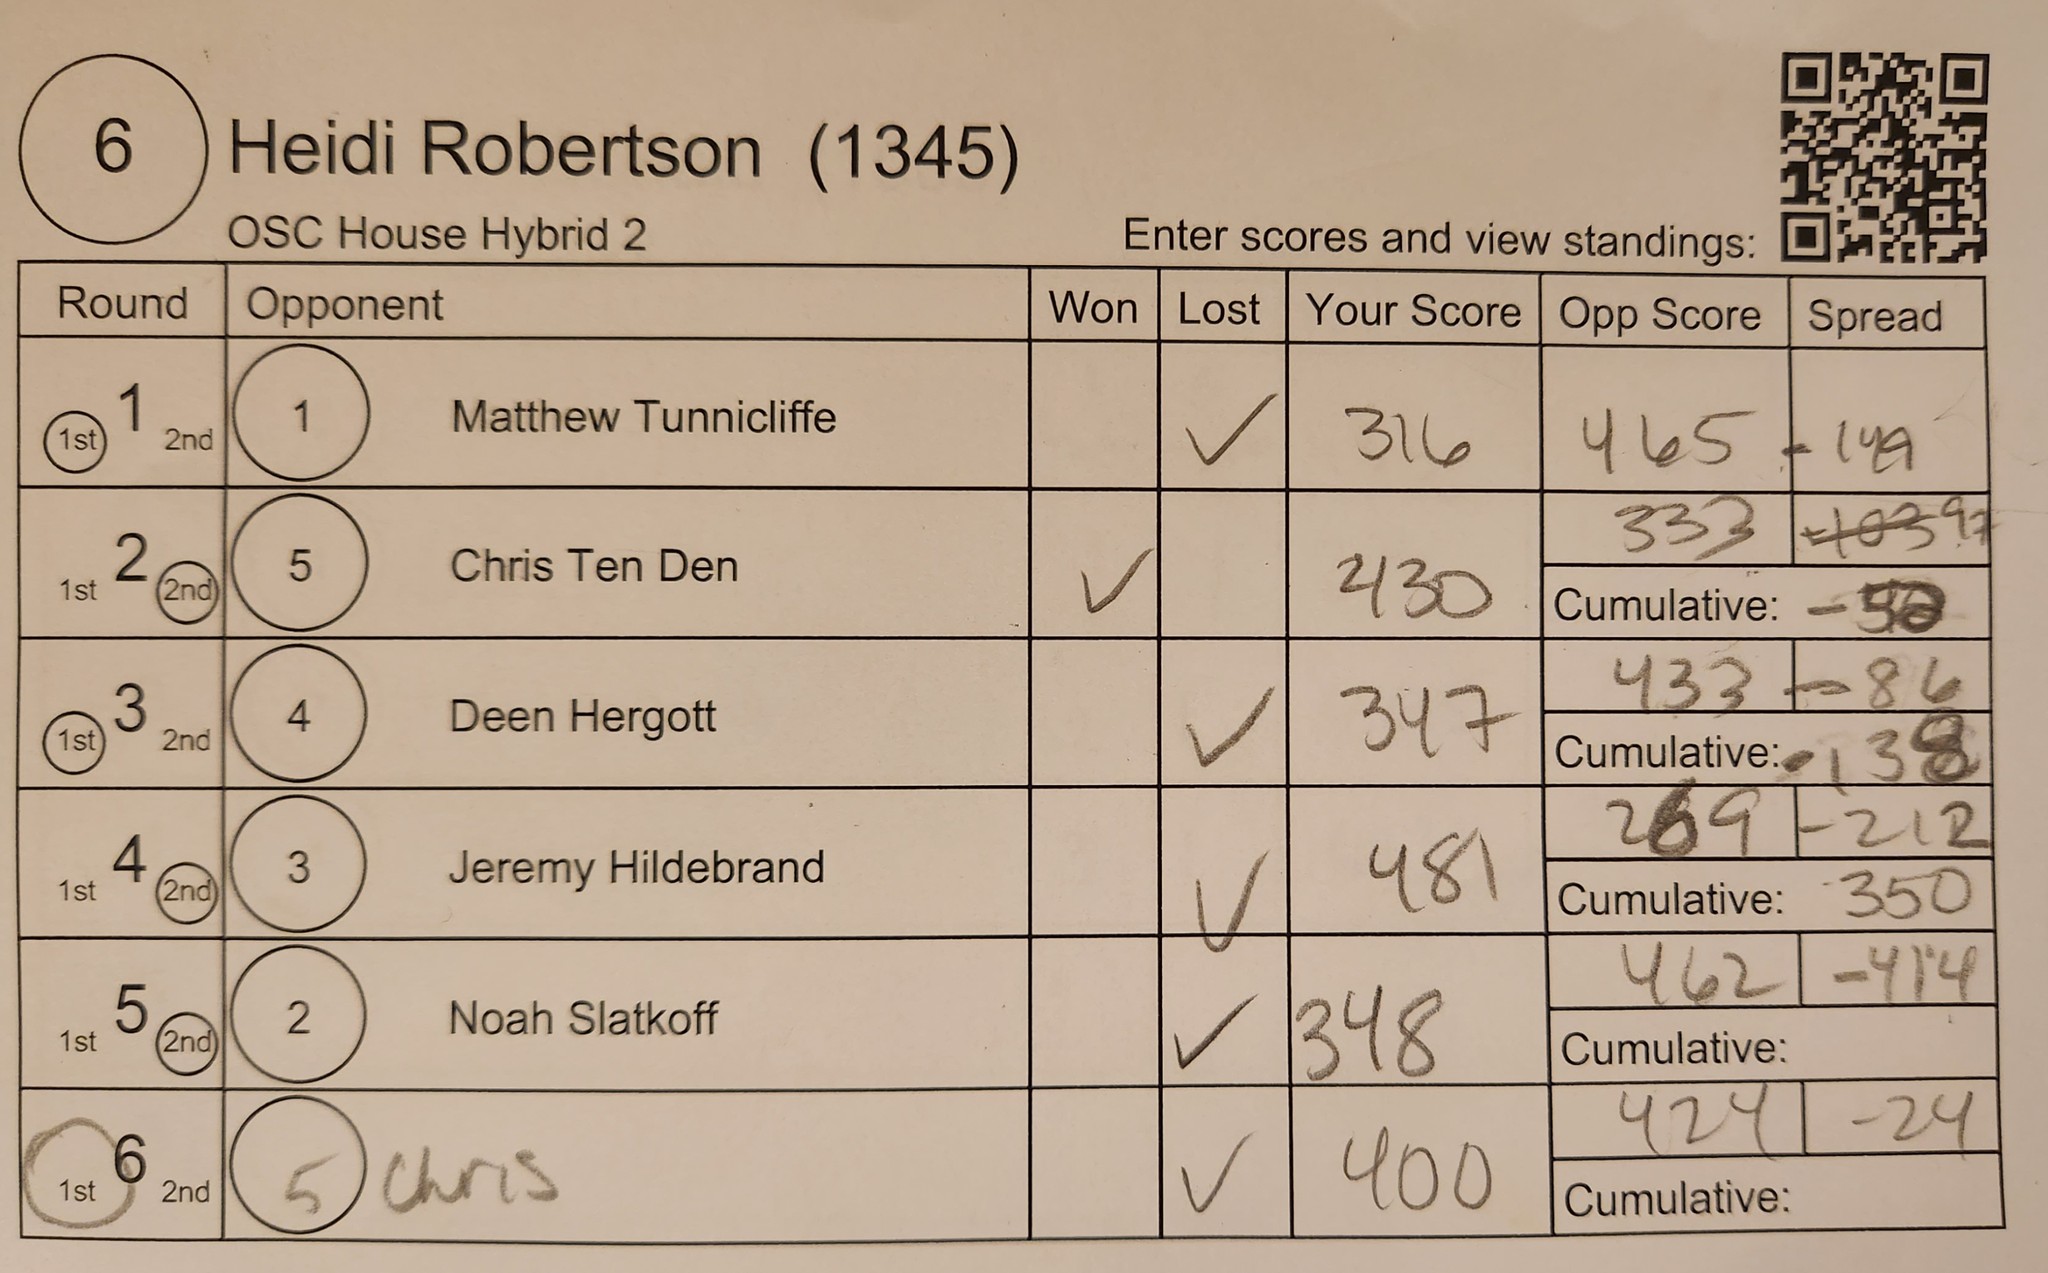 6 Heidi Robertson (1345)
OSC House Hybrid 2 Enter scores and view standings:
Round Opponent Won Lost Your Score Opp Score Spread
1 1st 2nd 1 Matthew Tunnicliffe ✓ 316 465 -149
2 1st 2nd 5 Chris Ten Den ✓ 430 333 +103 97
Cumulative: -52
3 1st 2nd 4 Deen Hergott ✓ 347 433 -86
Cumulative: -138
4 1st 2nd 3 Jeremy Hildebrand ✓ 481 269 -212
Cumulative: -350
5 1st 2nd 2 Noah Slatkoff ✓ 348 462 -414
Cumulative:
6 1st 2nd 5 Chris ✓ 400 424 -24
Cumulative: